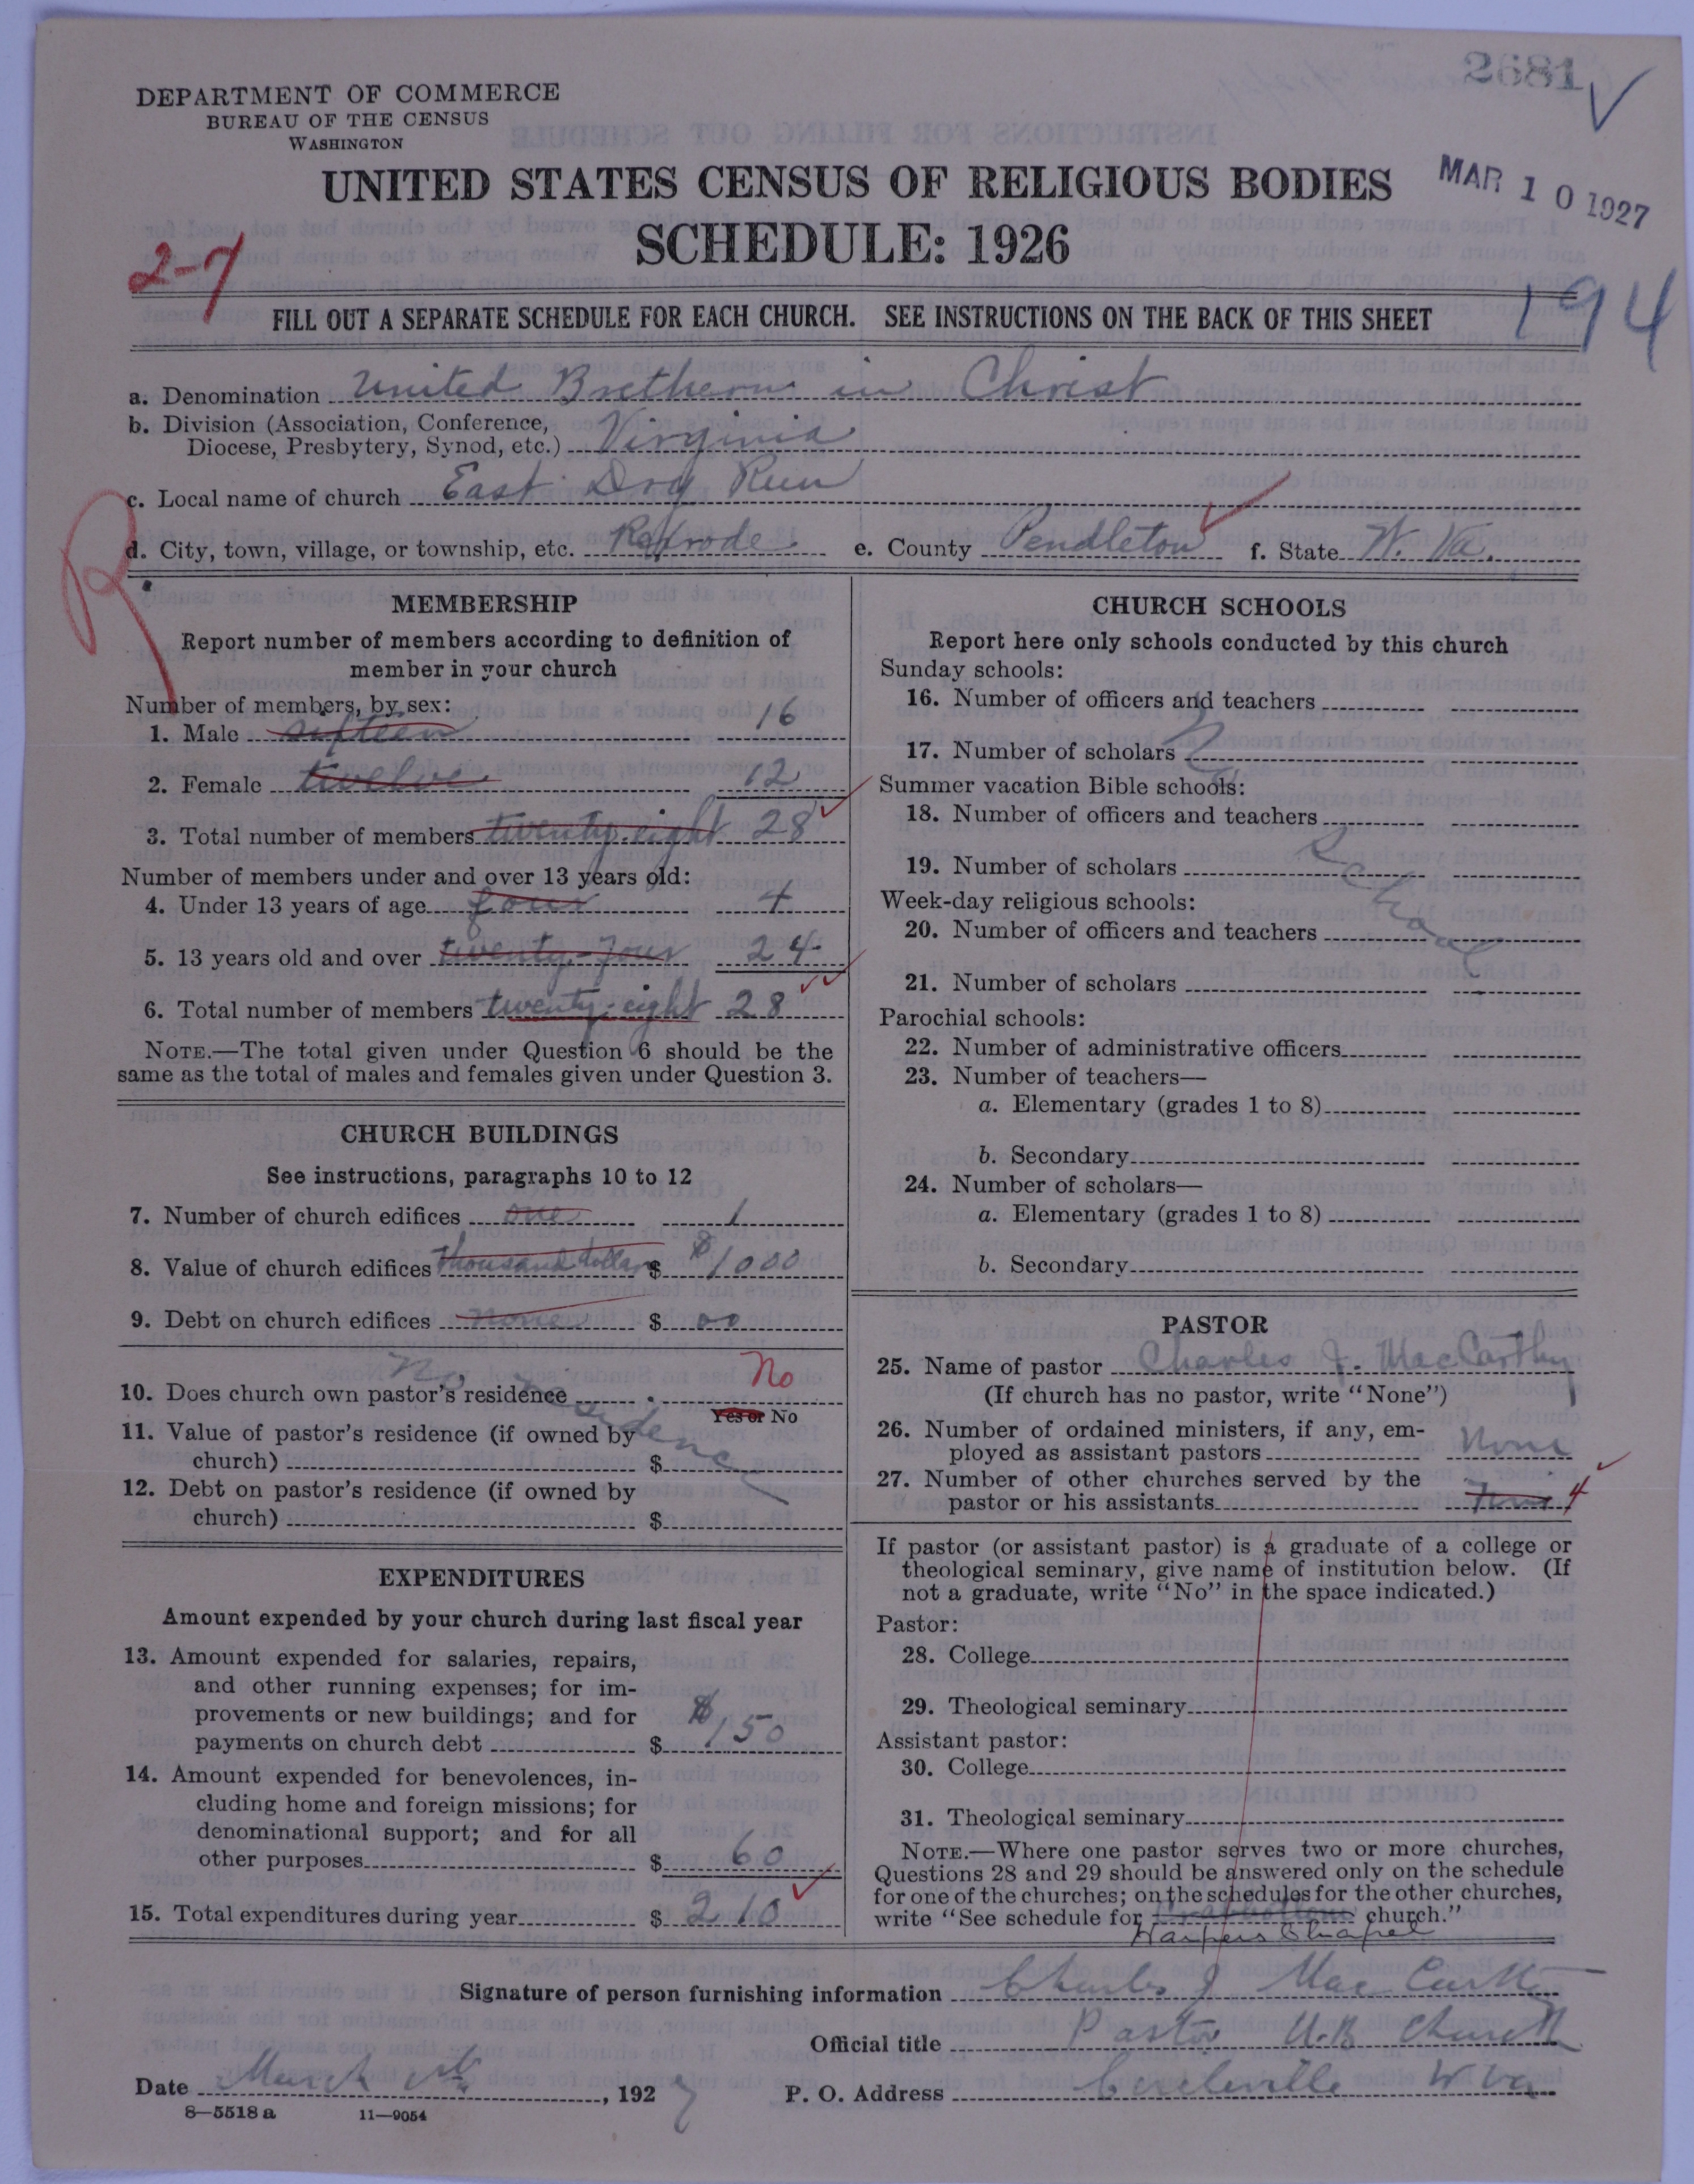 2681
DEPARTMENT OF COMMERCE
BUREAU OF THE CENSUS
WASHINGTON
UNITED STATES CENSUS OF RELIGIOUS BODIES
MAR 10 1927
SCHEDULE: 1926
2-7
194
FILL OUT A SEPARATE SCHEDULE FOR EACH CHURCH. SEE INSTRUCTIONS ON THE BACK OF THIS SHEET
a. Denomination United Brethern in Christ
b. Division (Association, Conference,
Diocese, Presbytery, Synod, etc.) Virginia
c. Local name of church East Dry Run
R
d. City, town, village, or township, etc. Rexrode e. County Pendleton f. State W. Va.
MEMBERSHIP
Report number of members according to definition of
member in your church
Number of members, by sex:
1. Male sixteen 16
2. Female twelve 12
3. Total number of members twenty-eight 28
Number of members under and over 13 years old:
4. Under 13 years of age four 4
5. 13 years old and over twenty-four 24
6. Total number of members twenty-eight 28
NOTE.—The total given under Question 6 should be the
same as the total of males and females given under Question 3.
CHURCH BUILDINGS
See instructions, paragraphs 10 to 12
7. Number of church edifices one 1
8. Value of church edifices thousand dollars $ $1000
9. Debt on church edifices none $ 00
10. Does church own pastor's residence No
Yes or No
No residence
11. Value of pastor's residence (if owned by
church) $
12. Debt on pastor's residence (if owned by
church) $
EXPENDITURES
Amount expended by your church during last fiscal year
13. Amount expended for salaries, repairs,
and other running expenses; for im-
provements or new buildings; and for
payments on church debt $ $150
14. Amount expended for benevolences, in-
cluding home and foreign missions; for
denominational support; and for all
other purposes $ 60
15. Total expenditures during year $ 210
CHURCH SCHOOLS
Report here only schools conducted by this church
Sunday schools:
16. Number of officers and teachers
17. Number of scholars
Summer vacation Bible schools:
18. Number of officers and teachers
19. Number of scholars
No School
Week-day religious schools:
20. Number of officers and teachers
21. Number of scholars
Parochial schools:
22. Number of administrative officers
23. Number of teachers—
a. Elementary (grades 1 to 8)
b. Secondary
24. Number of scholars—
a. Elementary (grades 1 to 8)
b. Secondary
PASTOR
25. Name of pastor Charles J. MacCarthy
(If church has no pastor, write "None")
26. Number of ordained ministers, if any, em-
ployed as assistant pastors None
27. Number of other churches served by the
pastor or his assistants Four 4
If pastor (or assistant pastor) is a graduate of a college or
theological seminary, give name of institution below. (If
not a graduate, write "No" in the space indicated.)
Pastor:
28. College
29. Theological seminary
Assistant pastor:
30. College
31. Theological seminary
NOTE.—Where one pastor serves two or more churches,
Questions 28 and 29 should be answered only on the schedule
for one of the churches; on the schedules for the other churches,
write "See schedule for church."
Harpers Chapel
Signature of person furnishing information Charles J Mac Carthy
Official title Pastor U.B. Church
Date March , 1927 P. O. Address Circleville W Va
8—5518 a 11—9054